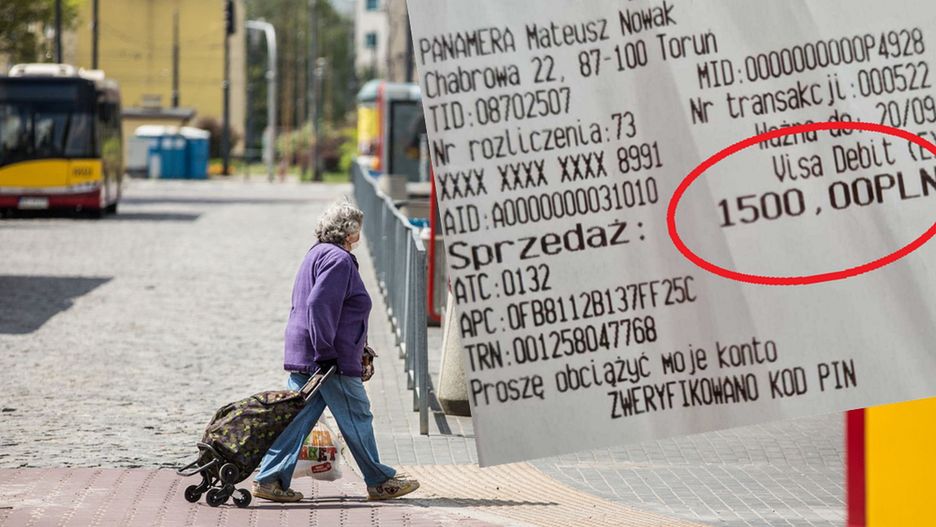 PANAMERA Mateusz Nowak
Chabrowa 22, 87-100 Toruń
TID:08702507
MID:0000000000P4928
Nr rozliczenia:73
Nr transakcji:000522
XXXX XXXX XXXX 8991
Ważna do 20/09
AID:A0000000031010
Visa Debit
Sprzedaż:
1500,00PLN
ATC:0132
APC:0FB8112B137FF25C
TRN:001258047768
Proszę obciążyć moje konto
ZWERYFIKOWANO KOD PIN